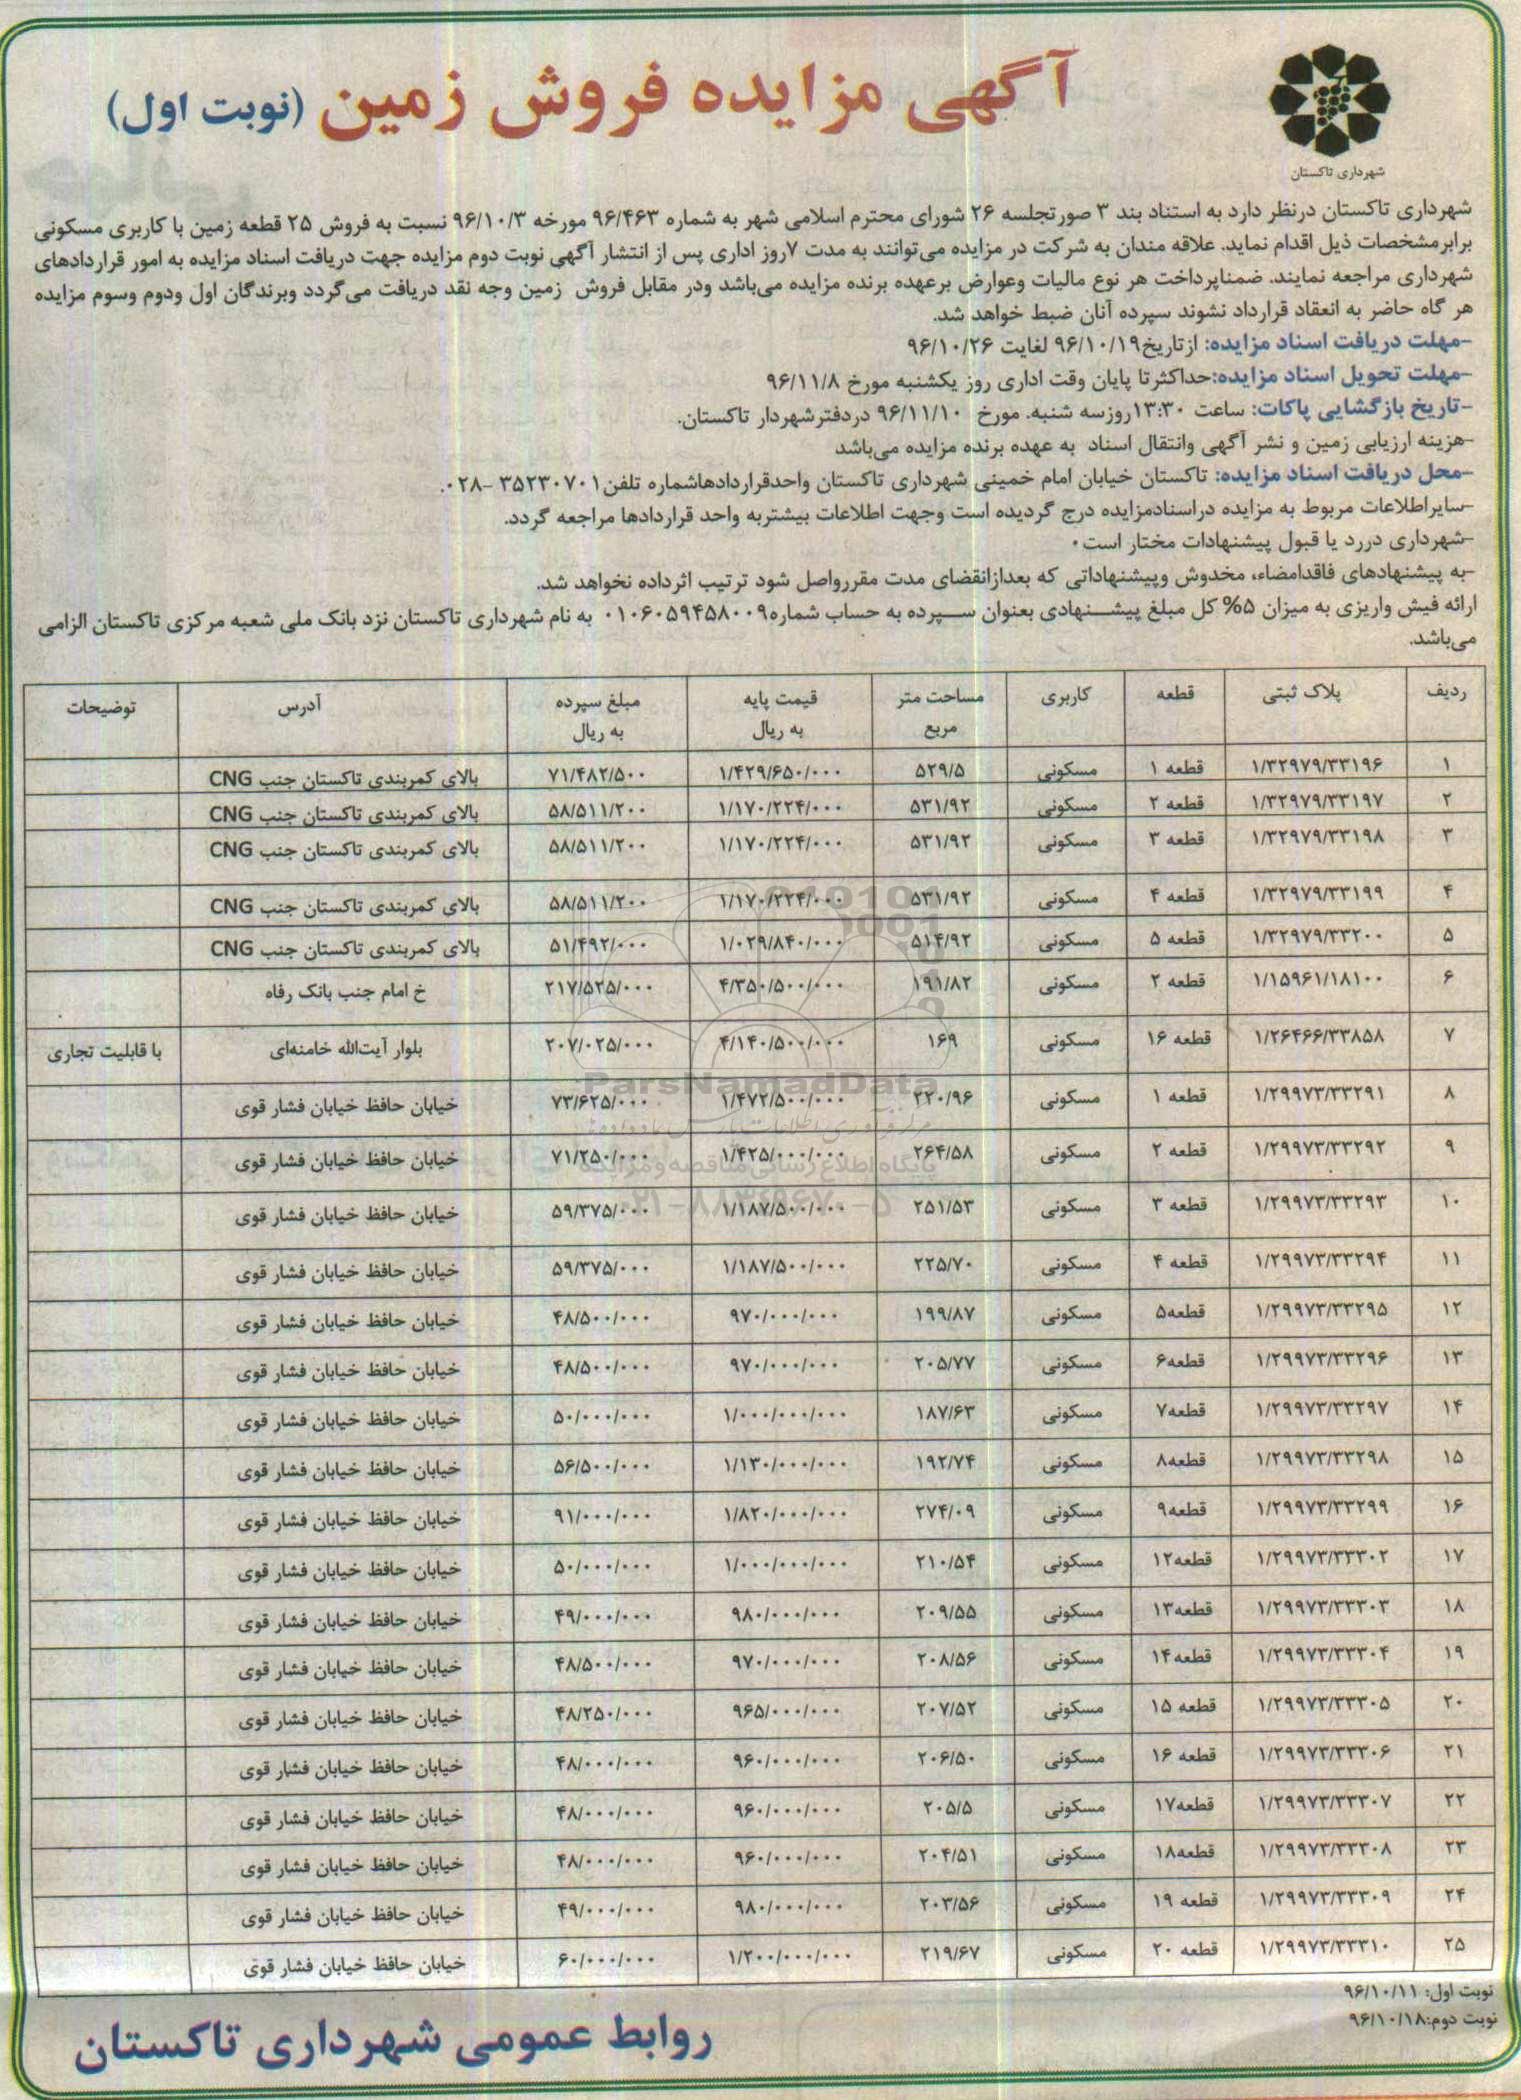 آگهی مزایده فروش زمین (نوبت اول)
شهرداری تاکستان
شهرداری تاکستان درنظر دارد به استناد بند ۳ صورتجلسه ۲۶ شورای محترم اسلامی شهر به شماره ۹۶/۴۶۳ مورخه ۹۶/۱۰/۳ نسبت به فروش ۲۵ قطعه زمین با کاربری مسکونی
برابرمشخصات ذیل اقدام نماید. علاقه مندان به شرکت در مزایده می‌توانند به مدت ۷روز اداری پس از انتشار آگهی نوبت دوم مزایده جهت دریافت اسناد مزایده به امور قراردادهای
شهرداری مراجعه نمایند. ضمناپرداخت هر نوع مالیات وعوارض برعهده برنده مزایده می‌باشد ودر مقابل فروش زمین وجه نقد دریافت می‌گردد وبرندگان اول ودوم وسوم مزایده
هر گاه حاضر به انعقاد قرارداد نشوند سپرده آنان ضبط خواهد شد.
-مهلت دریافت اسناد مزایده: ازتاریخ۹۶/۱۰/۱۹ لغایت ۹۶/۱۰/۲۶
-مهلت تحویل اسناد مزایده:حداکثرتا پایان وقت اداری روز یکشنبه مورخ ۹۶/۱۱/۸
-تاریخ بازگشایی پاکات: ساعت ۱۳:۳۰روزسه شنبه. مورخ ۹۶/۱۱/۱۰ دردفترشهردار تاکستان.
-هزینه ارزیابی زمین و نشر آگهی وانتقال اسناد به عهده برنده مزایده می‌باشد
-محل دریافت اسناد مزایده: تاکستان خیابان امام خمینی شهرداری تاکستان واحدقراردادهاشماره تلفن۳۵۲۳۰۷۰۱-۰۲۸.
-سایراطلاعات مربوط به مزایده دراسنادمزایده درج گردیده است وجهت اطلاعات بیشتربه واحد قراردادها مراجعه گردد.
-شهرداری دررد یا قبول پیشنهادات مختار است۰
-به پیشنهادهای فاقدامضاء، مخدوش وپیشنهاداتی که بعدازانقضای مدت مقررواصل شود ترتیب اثرداده نخواهد شد.
ارائه فیش واریزی به میزان ۵% کل مبلغ پیشنهادی بعنوان سپرده به حساب شماره۰۱۰۶۰۵۹۴۵۸۰۰۹ به نام شهرداری تاکستان نزد بانک ملی شعبه مرکزی تاکستان الزامی
می‌باشد.
ردیف پلاک ثبتی قطعه کاربری مساحت متر مربع قیمت پایه به ریال مبلغ سپرده به ریال آدرس توضیحات
۱ ۱/۳۲۹۷۹/۳۳۱۹۶ قطعه ۱ مسکونی ۵۲۹/۵ ۱/۴۲۹/۶۵۰/۰۰۰ ۷۱/۴۸۲/۵۰۰ بالای کمربندی تاکستان جنب CNG
۲ ۱/۳۲۹۷۹/۳۳۱۹۷ قطعه ۲ مسکونی ۵۳۱/۹۲ ۱/۱۷۰/۲۲۴/۰۰۰ ۵۸/۵۱۱/۲۰۰ بالای کمربندی تاکستان جنب CNG
۳ ۱/۳۲۹۷۹/۳۳۱۹۸ قطعه ۳ مسکونی ۵۳۱/۹۲ ۱/۱۷۰/۲۲۴/۰۰۰ ۵۸/۵۱۱/۲۰۰ بالای کمربندی تاکستان جنب CNG
۴ ۱/۳۲۹۷۹/۳۳۱۹۹ قطعه ۴ مسکونی ۵۳۱/۹۲ ۱/۱۷۰/۲۲۴/۰۰۰ ۵۸/۵۱۱/۲۰۰ بالای کمربندی تاکستان جنب CNG
۵ ۱/۳۲۹۷۹/۳۳۲۰۰ قطعه ۵ مسکونی ۵۱۴/۹۲ ۱/۰۲۹/۸۴۰/۰۰۰ ۵۱/۴۹۲/۰۰۰ بالای کمربندی تاکستان جنب CNG
۶ ۱/۱۵۹۶۱/۱۸۱۰۰ قطعه ۲ مسکونی ۱۹۱/۸۲ ۴/۳۵۰/۵۰۰/۰۰۰ ۲۱۷/۵۲۵/۰۰۰ خ امام جنب بانک رفاه
۷ ۱/۲۶۴۶۶/۳۳۸۵۸ قطعه ۱۶ مسکونی ۱۶۹ ۴/۱۴۰/۵۰۰/۰۰۰ ۲۰۷/۰۲۵/۰۰۰ بلوار آیت‌الله خامنه‌ای با قابلیت تجاری
۸ ۱/۲۹۹۷۳/۳۳۲۹۱ قطعه ۱ مسکونی ۲۲۰/۹۶ ۱/۴۷۲/۵۰۰/۰۰۰ ۷۳/۶۲۵/۰۰۰ خیابان حافظ خیابان فشار قوی
۹ ۱/۲۹۹۷۳/۳۳۲۹۲ قطعه ۲ مسکونی ۲۶۴/۵۸ ۱/۴۲۵/۰۰۰/۰۰۰ ۷۱/۲۵۰/۰۰۰ خیابان حافظ خیابان فشار قوی
۱۰ ۱/۲۹۹۷۳/۳۳۲۹۳ قطعه ۳ مسکونی ۲۵۱/۵۳ ۱/۱۸۷/۵۰۰/۰۰۰ ۵۹/۳۷۵/۰۰۰ خیابان حافظ خیابان فشار قوی
۱۱ ۱/۲۹۹۷۳/۳۳۲۹۴ قطعه ۴ مسکونی ۲۲۵/۷۰ ۱/۱۸۷/۵۰۰/۰۰۰ ۵۹/۳۷۵/۰۰۰ خیابان حافظ خیابان فشار قوی
۱۲ ۱/۲۹۹۷۳/۳۳۲۹۵ قطعه۵ مسکونی ۱۹۹/۸۷ ۹۷۰/۰۰۰/۰۰۰ ۴۸/۵۰۰/۰۰۰ خیابان حافظ خیابان فشار قوی
۱۳ ۱/۲۹۹۷۳/۳۳۲۹۶ قطعه۶ مسکونی ۲۰۵/۷۷ ۹۷۰/۰۰۰/۰۰۰ ۴۸/۵۰۰/۰۰۰ خیابان حافظ خیابان فشار قوی
۱۴ ۱/۲۹۹۷۳/۳۳۲۹۷ قطعه۷ مسکونی ۱۸۷/۶۳ ۱/۰۰۰/۰۰۰/۰۰۰ ۵۰/۰۰۰/۰۰۰ خیابان حافظ خیابان فشار قوی
۱۵ ۱/۲۹۹۷۳/۳۳۲۹۸ قطعه۸ مسکونی ۱۹۲/۷۴ ۱/۱۳۰/۰۰۰/۰۰۰ ۵۶/۵۰۰/۰۰۰ خیابان حافظ خیابان فشار قوی
۱۶ ۱/۲۹۹۷۳/۳۳۲۹۹ قطعه۹ مسکونی ۲۷۴/۰۹ ۱/۸۲۰/۰۰۰/۰۰۰ ۹۱/۰۰۰/۰۰۰ خیابان حافظ خیابان فشار قوی
۱۷ ۱/۲۹۹۷۳/۳۳۳۰۲ قطعه۱۲ مسکونی ۲۱۰/۵۴ ۱/۰۰۰/۰۰۰/۰۰۰ ۵۰/۰۰۰/۰۰۰ خیابان حافظ خیابان فشار قوی
۱۸ ۱/۲۹۹۷۳/۳۳۳۰۳ قطعه۱۳ مسکونی ۲۰۹/۵۵ ۹۸۰/۰۰۰/۰۰۰ ۴۹/۰۰۰/۰۰۰ خیابان حافظ خیابان فشار قوی
۱۹ ۱/۲۹۹۷۳/۳۳۳۰۴ قطعه۱۴ مسکونی ۲۰۸/۵۶ ۹۷۰/۰۰۰/۰۰۰ ۴۸/۵۰۰/۰۰۰ خیابان حافظ خیابان فشار قوی
۲۰ ۱/۲۹۹۷۳/۳۳۳۰۵ قطعه ۱۵ مسکونی ۲۰۷/۵۲ ۹۶۵/۰۰۰/۰۰۰ ۴۸/۲۵۰/۰۰۰ خیابان حافظ خیابان فشار قوی
۲۱ ۱/۲۹۹۷۳/۳۳۳۰۶ قطعه ۱۶ مسکونی ۲۰۶/۵۰ ۹۶۰/۰۰۰/۰۰۰ ۴۸/۰۰۰/۰۰۰ خیابان حافظ خیابان فشار قوی
۲۲ ۱/۲۹۹۷۳/۳۳۳۰۷ قطعه۱۷ مسکونی ۲۰۵/۵ ۹۶۰/۰۰۰/۰۰۰ ۴۸/۰۰۰/۰۰۰ خیابان حافظ خیابان فشار قوی
۲۳ ۱/۲۹۹۷۳/۳۳۳۰۸ قطعه۱۸ مسکونی ۲۰۴/۵۱ ۹۶۰/۰۰۰/۰۰۰ ۴۸/۰۰۰/۰۰۰ خیابان حافظ خیابان فشار قوی
۲۴ ۱/۲۹۹۷۳/۳۳۳۰۹ قطعه ۱۹ مسکونی ۲۰۳/۵۶ ۹۸۰/۰۰۰/۰۰۰ ۴۹/۰۰۰/۰۰۰ خیابان حافظ خیابان فشار قوی
۲۵ ۱/۲۹۹۷۳/۳۳۳۱۰ قطعه ۲۰ مسکونی ۲۱۹/۶۷ ۱/۲۰۰/۰۰۰/۰۰۰ ۶۰/۰۰۰/۰۰۰ خیابان حافظ خیابان فشار قوی
ParsNamadData
پایگاه اطلاع رسانی مناقصه و مزایده
۰۲۱-۸۸۳۴۹۶۷۰-۵
نوبت اول: ۹۶/۱۰/۱۱
نوبت دوم:۹۶/۱۰/۱۸
روابط عمومی شهرداری تاکستان